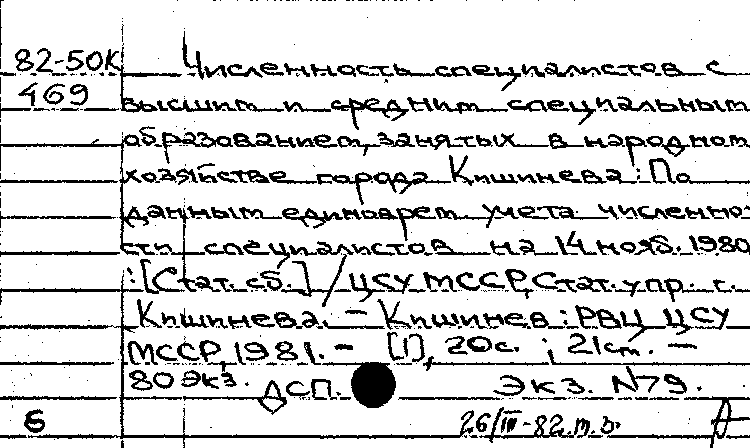 82-50К Численность специалистов с
469 высшим и средним специальным
образованием, занятых в народном
хозяйстве города Кишинева: По
данным единоврем. учета численно-
сти специалистов на 14 нояб. 1980
:[Стат. сб.] / ЦСУ МССР, Стат. упр. г.
Кишинева. – Кишинев: РВЦ ЦСУ
МССР, 1981. – [1], 20с. ; 21см. –
80 экз. ДСП. Экз. №79.
6 26/III-82.т.